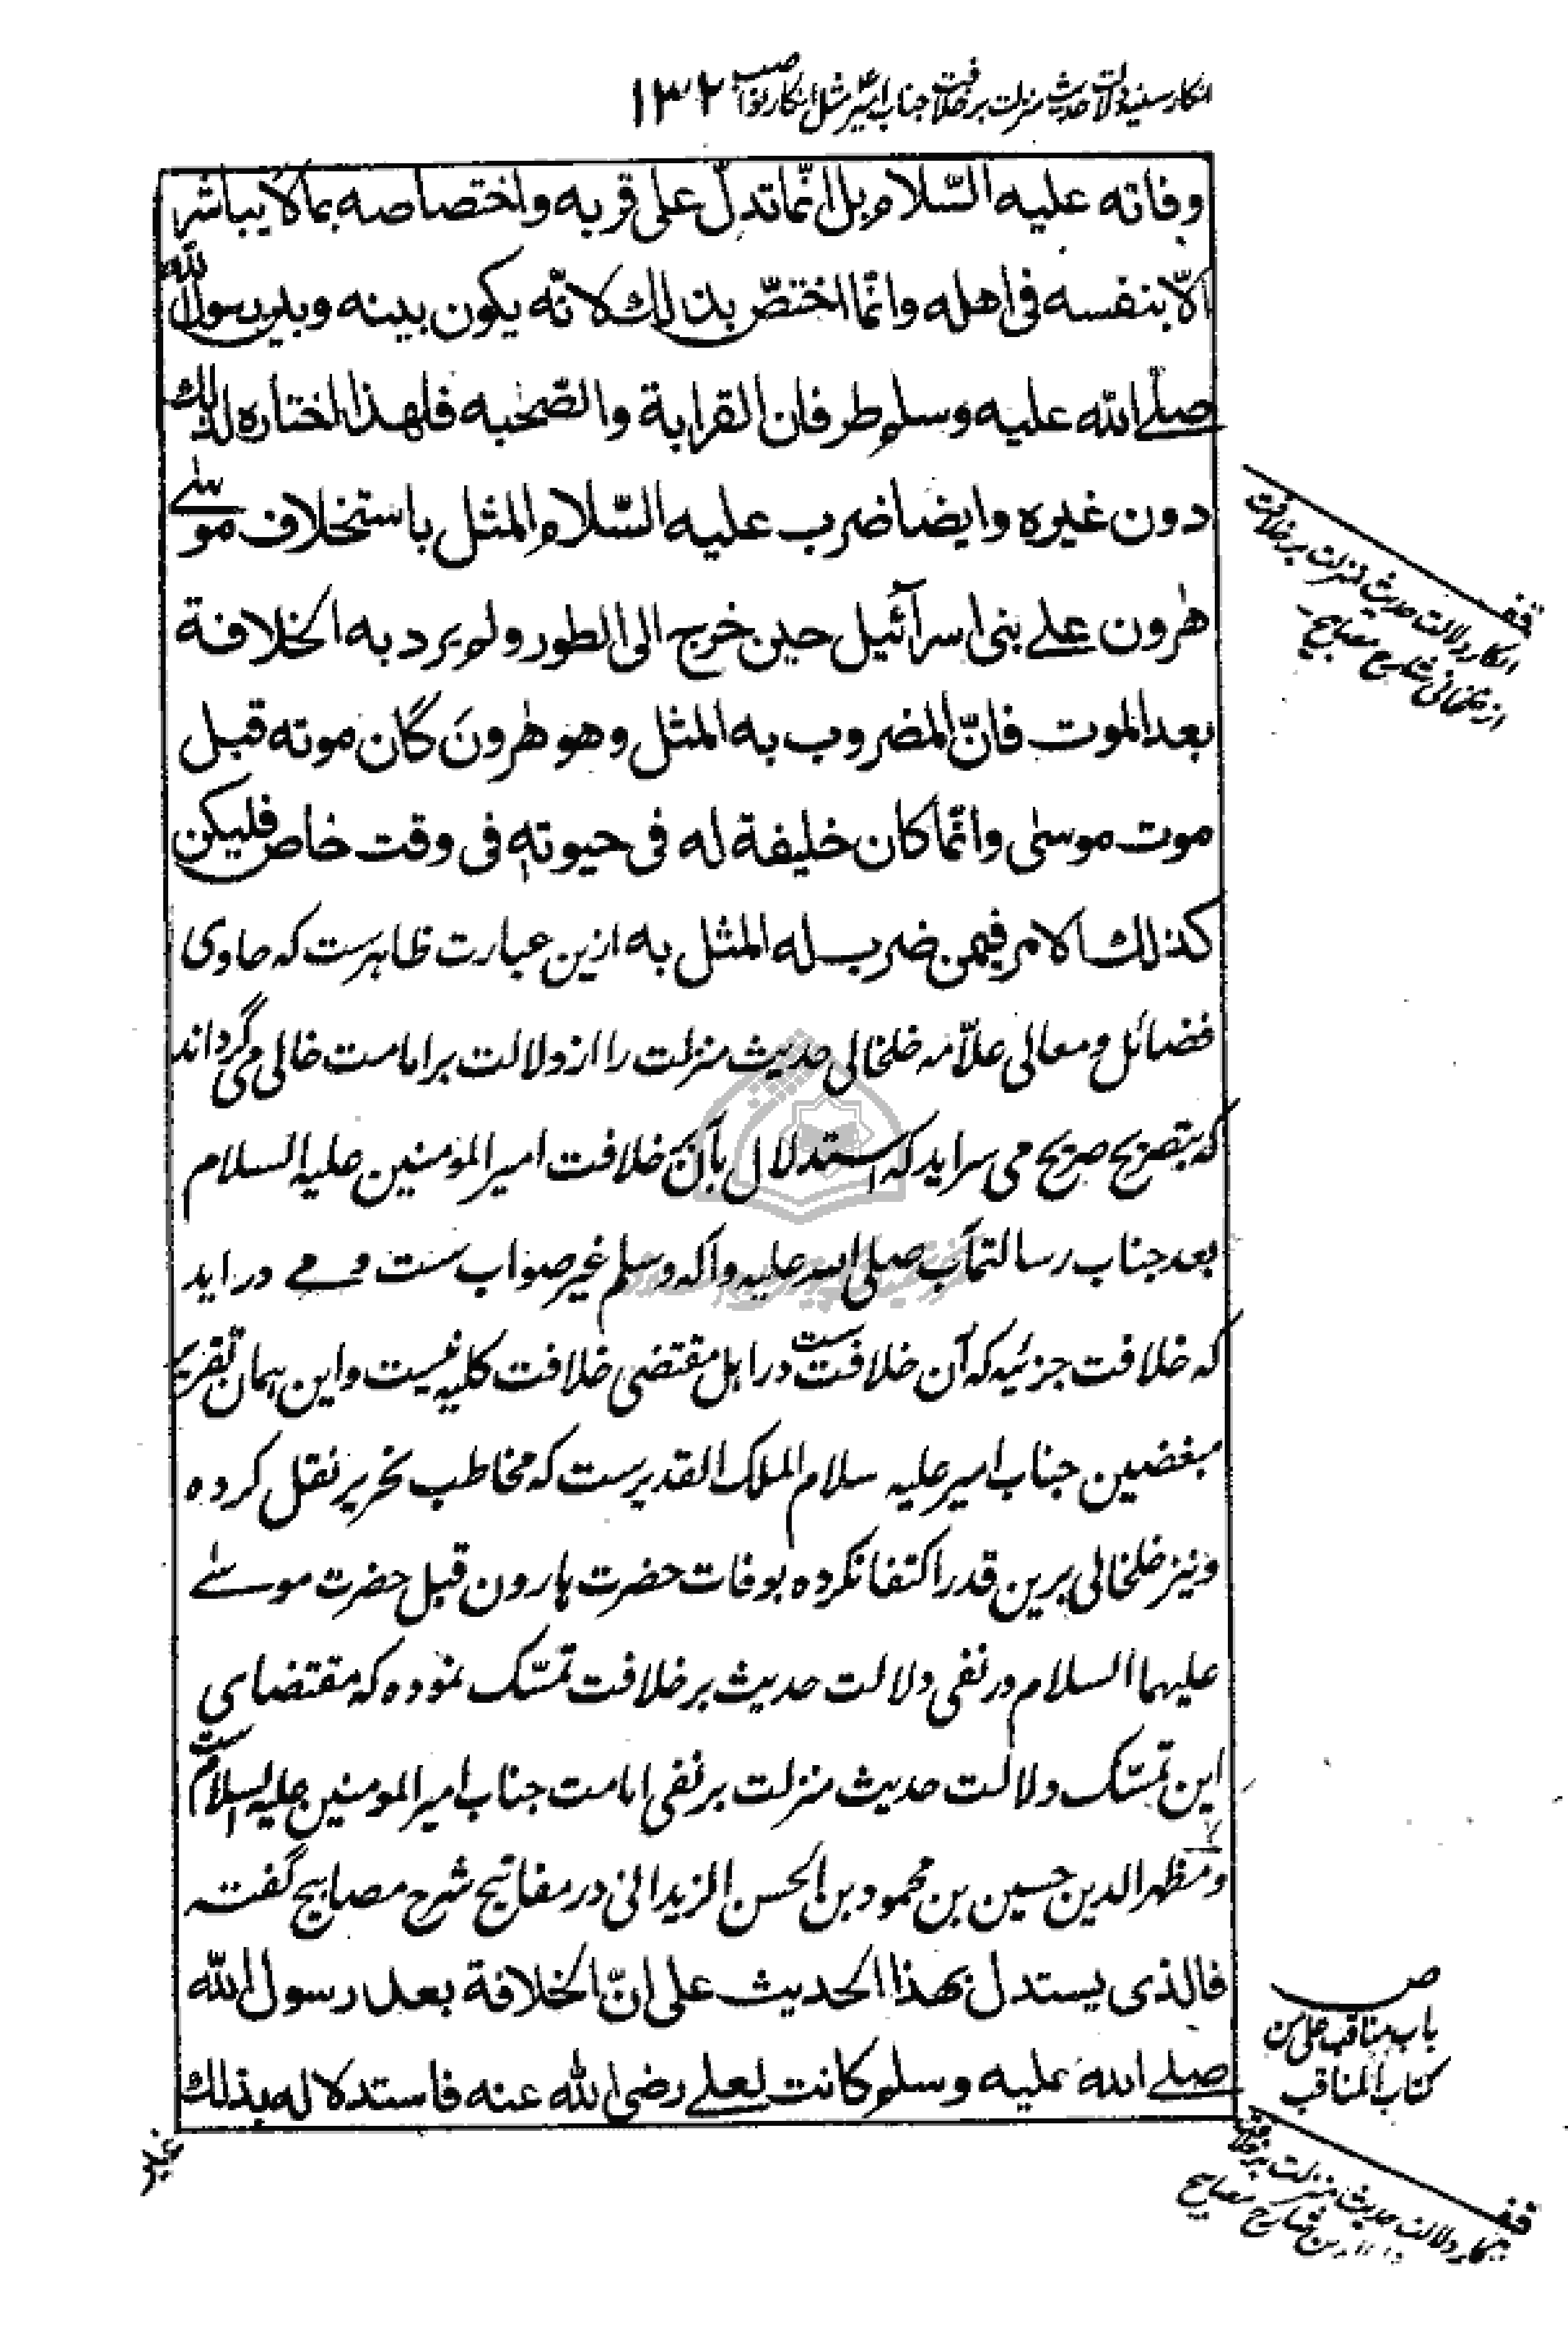 انکار سنیه دلالت حدیث منزلت بر خلافت جناب امیر مثل انکار نواصب ۱۳۲
وفاته عليه السّلام بل انّما تدلّ على قربه واختصاصه بما لا يباشر
الّا بنفسه فى اهله وانّما اختصّ بذلك لانّه يكون بينه وبين رسول الله
صلّے الله عليه وسلم طرفان القرابة والصّحبه فلهذا اختاره لذلك
دون غيره وايضا ضرب عليه السّلام المثل باستخلاف موسے
هٰرون علے بنى اسرآئيل حين خرج الى الطور ولم يرد به الخلافة
بعد الموت فانّ المضروب به المثل وهو هٰرونَ كان موته قبل
موت موسىٰ وانّما كان خليفة له فى حيوته فى وقت خاص فليكن
كذلك الامر فيمن ضرب له المثل به ازین عبارت ظاہرست که حاوی
فضائل و معالی علّامه خلخالی حدیث منزلت را از دلالت بر امامت خالی می گرداند
که بتصریح صریح می سراید که استدلال بآن بر خلافت امیر المؤمنین علیه السلام
بعد جناب رسالتمآب صلی الله علیه وآله وسلم غیر صواب ست و مے دراید
که خلافت جزئیه که آن خلافت ست در اہل مقتضی خلافت کلیه نیست و این ہمان تقریر
مبغضین جناب امیر علیه سلام الملک القدیرست که مخاطب نحریر نقل کرده
ونیز خلخالی برین قدر اکتفا نکرده بوفات حضرت ہارون قبل حضرت موسے
علیہما السلام در نفی دلالت حدیث بر خلافت تمسّک نموده که مقتضای
این تمسّک دلالت حدیث منزلت بر نفی امامت جناب امیر المومنین علیه السلام ست
و مظهر الدین حسین بن محمود بن الحسن الزیدانی در مفاتیح شرح مصابیح گفته
فالذى يستدل بهذا الحديث على انّ الخلافة بعد رسول الله
صلے الله عليه وسلم كانت لعلے رضى الله عنه فاستدلاله بذلك
غير
قف
انکار دلالت حدیث منزلت بر خلافت
از خلخالی شارح مصابیح
ص
باب مناقب علی من
کتاب المناقب
قف
انکار دلالت حدیث منزلت بر خلافت
شارح مصابیح